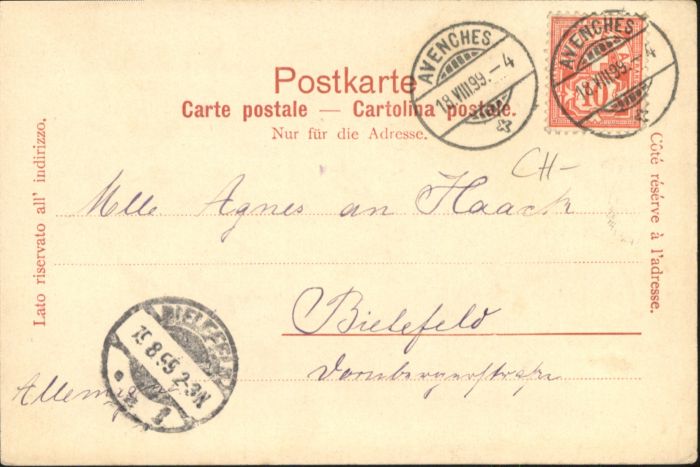 Postkarte
Carte postale — Cartolina postale.
Nur für die Adresse.
AVENCHES
18.VIII.99.-4
AVENCHES
18.VIII.99.-4
10
Lato riservato all' indirizzo.
Côté réservé à l'adresse.
CH-
Mlle Agnes an Haack
Bielefeld
Dornbergerstraße
BIELEFELD
19.8.99.2-3N
Allemagne